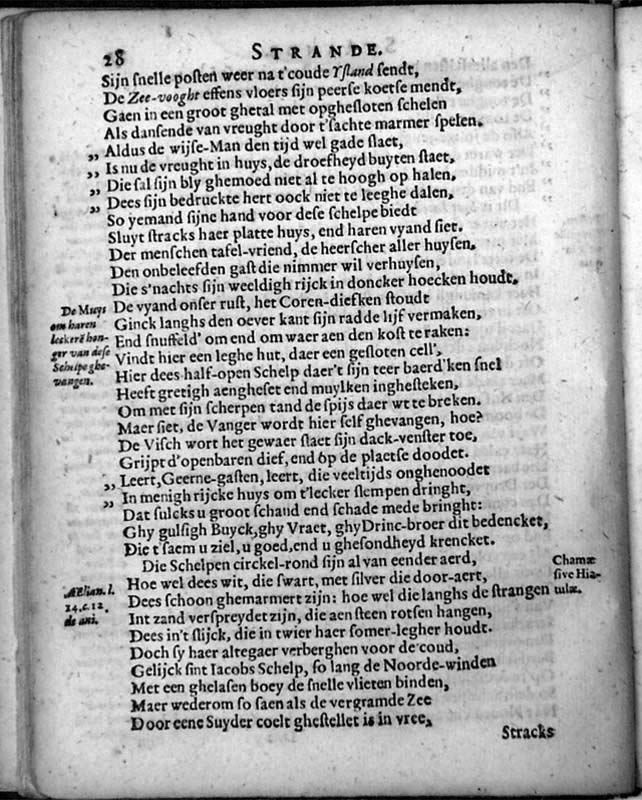 28 STRANDE.
Sijn snelle posten weer na t'coude Ysland sendt,
De Zee-vooght effens vloers sijn peerse koetse mendt,
Gaen in een groot ghetal met opghesloten schelen
Als dansende van vreught door t'sachte marmer spelen.
„ Aldus de wijse-Man den tijd wel gade slaet,
„ Is nu de vreught in huys, de droefheyd buyten staet,
„ Die sal sijn bly ghemoed niet al te hoogh op halen,
„ Dees sijn bedruckte hert oock niet te leeghe dalen,
So yemand sijne hand voor dese schelpe biedt
Sluyt stracks haer platte huys, end haren vyand siet.
Der menschen tafel-vriend, de heerscher aller huysen,
Den onbeleefden gast die nimmer wil verhuysen,
Die s'nachts sijn weeldigh rijck in doncker hoecken houdt,
De vyand onser rust, het Coren-diefken stoudt
Ginck langhs den oever kant sijn radde lijf vermaken,
End snuffeld' om end om waer aen den kost te raken:
Vindt hier een leghe hut, daer een gesloten cell',
Hier dees half-open Schelp daer't sijn teer baerd'ken snel
Heeft gretigh aengheset end muylken inghesteken,
Om met sijn scherpen tand de spijs daer wt te breken.
Maer siet, de Vanger wordt hier self ghevangen, hoe?
De Visch wort het gewaer slaet sijn dack-venster toe,
Grijpt d'openbaren dief, end óp de plaetse doodet.
„ Leert, Geerne-gasten, leert, die veeltijds onghenoodet
„ In menigh rijcke huys om t'lecker slempen dringht,
Dat sulcks u groot schand end schade mede bringht:
Ghy gulsigh Buyck, ghy Vraet, ghy Drinc-broer dit bedencket,
Die t'saem u ziel, u goed, end u ghesondheyd krencket.
Die Schelpen circkel-rond sijn al van eender aerd,
Hoe wel dees wit, die swart, met silver die door-aert,
Dees schoon ghemarmert zijn: hoe wel die langhs de strangen
Int zand verspreydet zijn, die aen steen rotsen hangen,
Dees in't slijck, die in twier haer somer-legher houdt.
Doch sy haer altegaer verberghen voor de coud,
Gelijck sint Iacobs Schelp, so lang de Noorde-winden
Met een ghelasen boey de snelle vlieten binden,
Maer wederom so saen als de vergramde Zee
Door eene Suyder coelt ghestellet is in vree,
Stracks
De Muys
om haren
leckerē hon-
ger van dese
Schelpe ghe-
vangen.
Ælian. l.
14. c. 12.
de ani.
Chamæ
sive Hia-
tulæ.